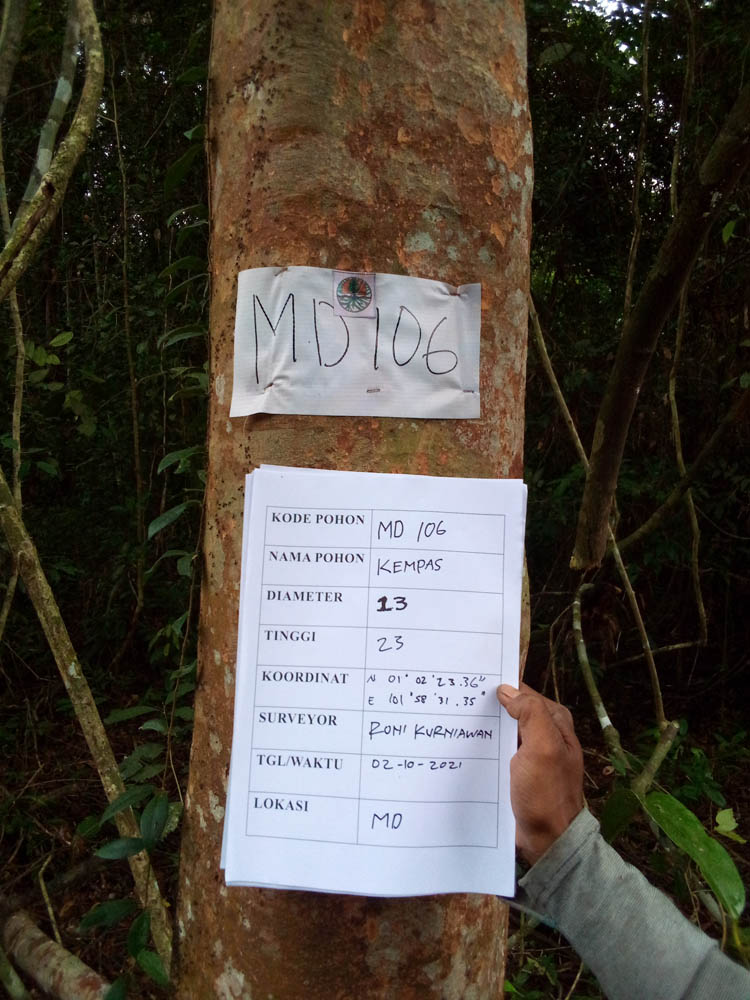 MD 106
KODE POHON MD 106
NAMA POHON KEMPAS
DIAMETER 13
TINGGI 23
KOORDINAT N 01° 02 '23.36"
E 101 °58 '31.35"
SURVEYOR RONI KURNIAWAN
TGL/WAKTU 02-10-2021
LOKASI MD